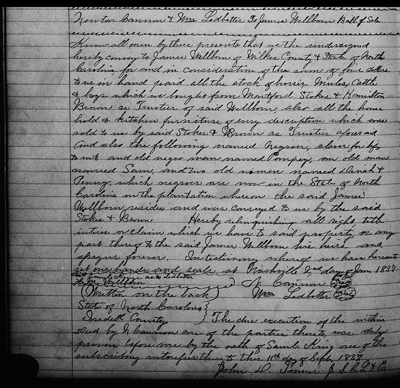 Newton Cannon & Wm Ledbetter To James Wellborn Bill of Sale
Know all men by these presents that we the undersigned
hereby convey to James Wellborn of Wilkes County & State of North
Carolina for and in consideration of the sum of five dollars
to us in hand paid all the stock of horses Mules, Cattle
& hogs which we bought from Montford Stokes & Hamilton
Brown as Trustees of said Wellborn, also all the house
hold & kitchen furniture of every description which was
sold to us by said Stokes & Brown as Trustees aforesaid
And also the following named Negroes, slaves for life
to wit and old negro man named Pompey, an old man
named Sam, and two old women named Dinah &
Penny, which negroes are now in the State of North
Carolina on the plantation whereon the said James
Wellborn resides and was conveyed to us by the said
Stokes & Brown Hereby relinquishing all right, title
interest or claim which we have to said property or any
part thereof to the said James Wellborn his heirs and
assigns forever. In testimony whereof we have hereunto
set our hands and seals at Nashville 2nd day of Jany 1837
N Cannon (Seal)
(Written on the back) Wm Ledbetter (Seal)
State of North Carolina
Iredell County The due execution of the within
deed by N Cannon one of the parties thereto was duly
proven before me by the oath of Saml King one of the
subscribing witnesses thereto this 11th day of Sept 1837